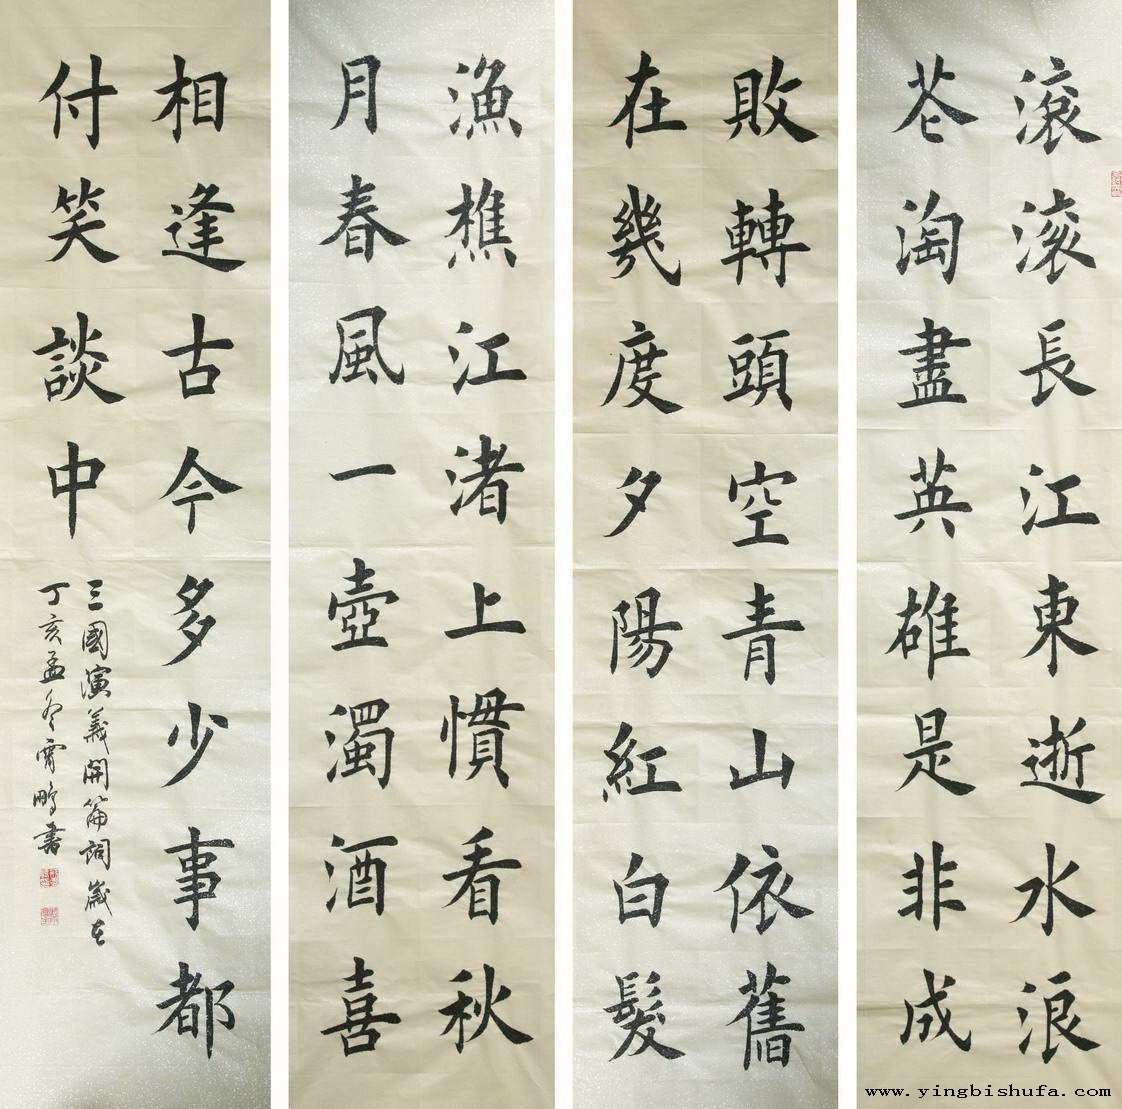 滾滚長江東逝水浪
花淘盡英雄是非成
敗轉頭空青山依舊
在幾度夕陽紅白髮
漁樵江渚上慣看秋
月春風一壺濁酒喜
相逢古今多少事都
付笑談中
三國演義開篇詞歲在
丁亥孟冬霄鵬書
www.yingbishufa.com